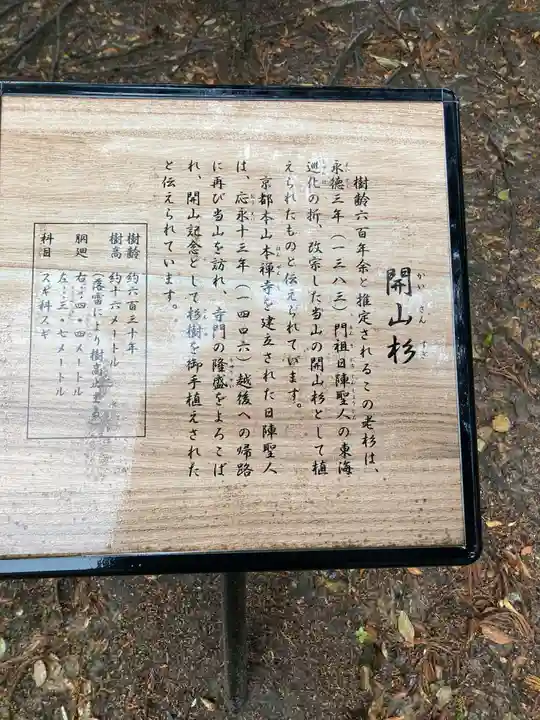 開山杉
かいさんすぎ
樹齢六百年余と推定されるこの老杉は、
永徳三年(一三八三)門祖日陣聖人の東海
巡化の折、改宗した当山の開山杉として植
えられたものと伝えられています。
京都本山本禅寺を建立された日陣聖人
は、応永十三年(一四〇六)越後への帰路
に再び当山を訪れ、寺門の隆盛をよろこば
れ、開山記念として杉樹を御手植えされた
と伝えられています。
樹齢 約六百三十年
樹高 約十六メートル
(落雷により樹高
胴廻 右 四・四メートル
左 三・七メートル
科目 スギ科スギ